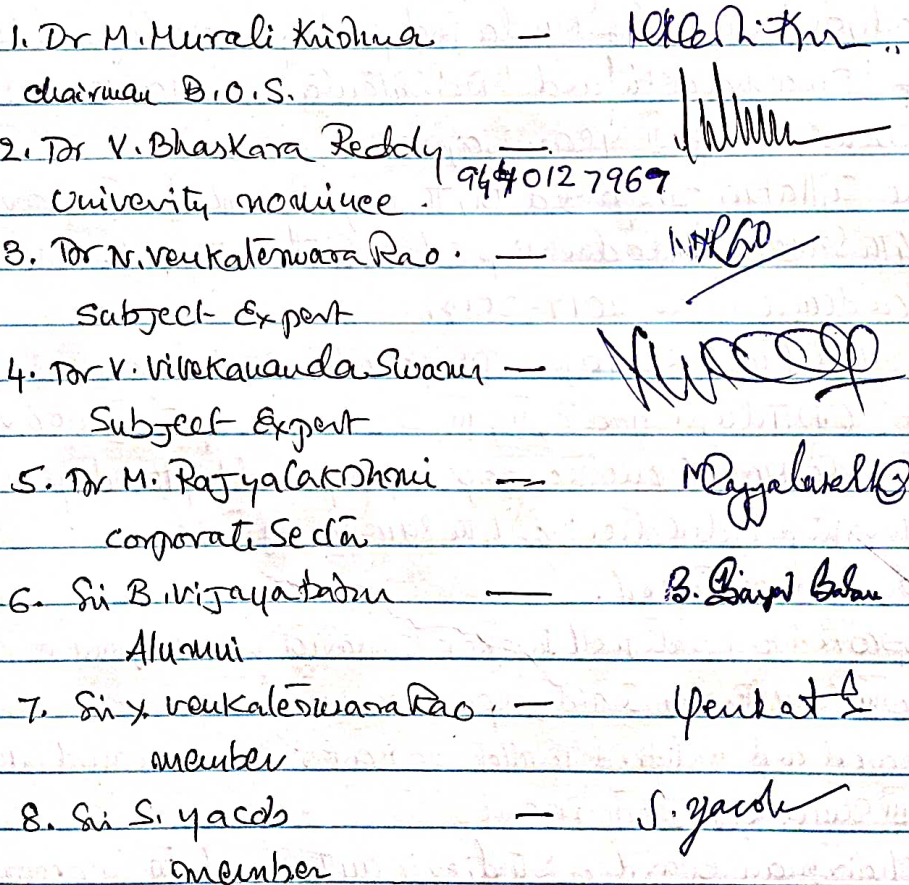 1. Dr M. Murali Krishna —
chairman B.O.S.
2. Dr V. Bhaskara Reddy —
University nominee.
3. Dr N. Venkateswara Rao. —
Subject Expert
4. Dr V. Vivekananda Swamy —
Subject Expert
5. Dr M. Rajyalakshmi —
corporate Sector
6. Sri B. Vijaya babu — B. Vijaya Babu
Alumni
7. Sri Y. Venkateswara Rao. — Venkat
member
8. Sri S. yacob — S. yacob
member